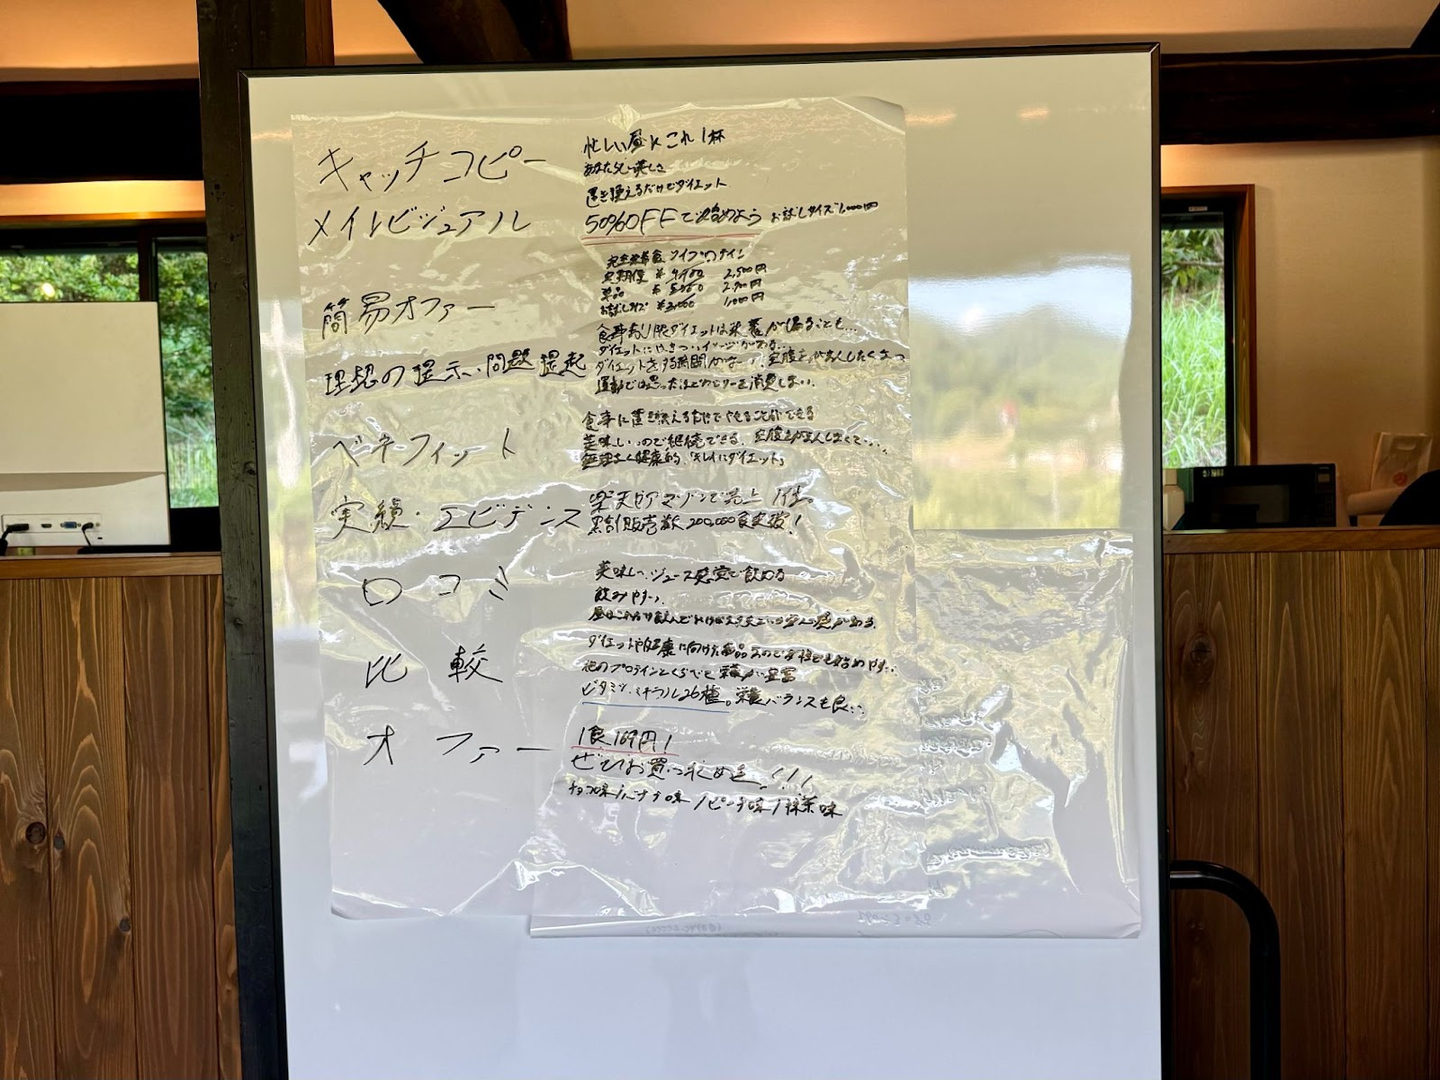 キャッチコピー
忙しい昼にこれ1杯
美しさ
置き換えるだけでダイエット
メインビジュアル
50%OFFで始めよう お試しサイズ1,000円
簡易オファー
完全栄養食
定期便 2,500円
単品 2,700円
お試しサイズ ¥2,000 1,000円
理想の提示、問題提起
食事制限ダイエットは栄養が偏ることも…
ダイエットにはきついイメージがある…
ダイエットをする時間がない、空腹をがまんしたくない
運動では思ったほどカロリーを消費しない。
ベネフィット
食事に置き換えるだけでやせることができる
美味しいので継続できる。空腹をがまんしなくていい
無理なく健康的「キレイにダイエット」
実績・エビデンス
楽天やアマゾンで売上1位。
累計販売数200,000食突破!
口コミ
美味しい、ジュース感覚で飲める
飲みやすい
比較
ダイエットや健康に向けた商品なので
他のプロテインとくらべて栄養が豊富
ビタミン、ミネラル26種。栄養バランスも良い
オファー
1食169円!
ぜひお買い求めを!!!
チョコ味/バナナ味/ピーチ味/抹茶味